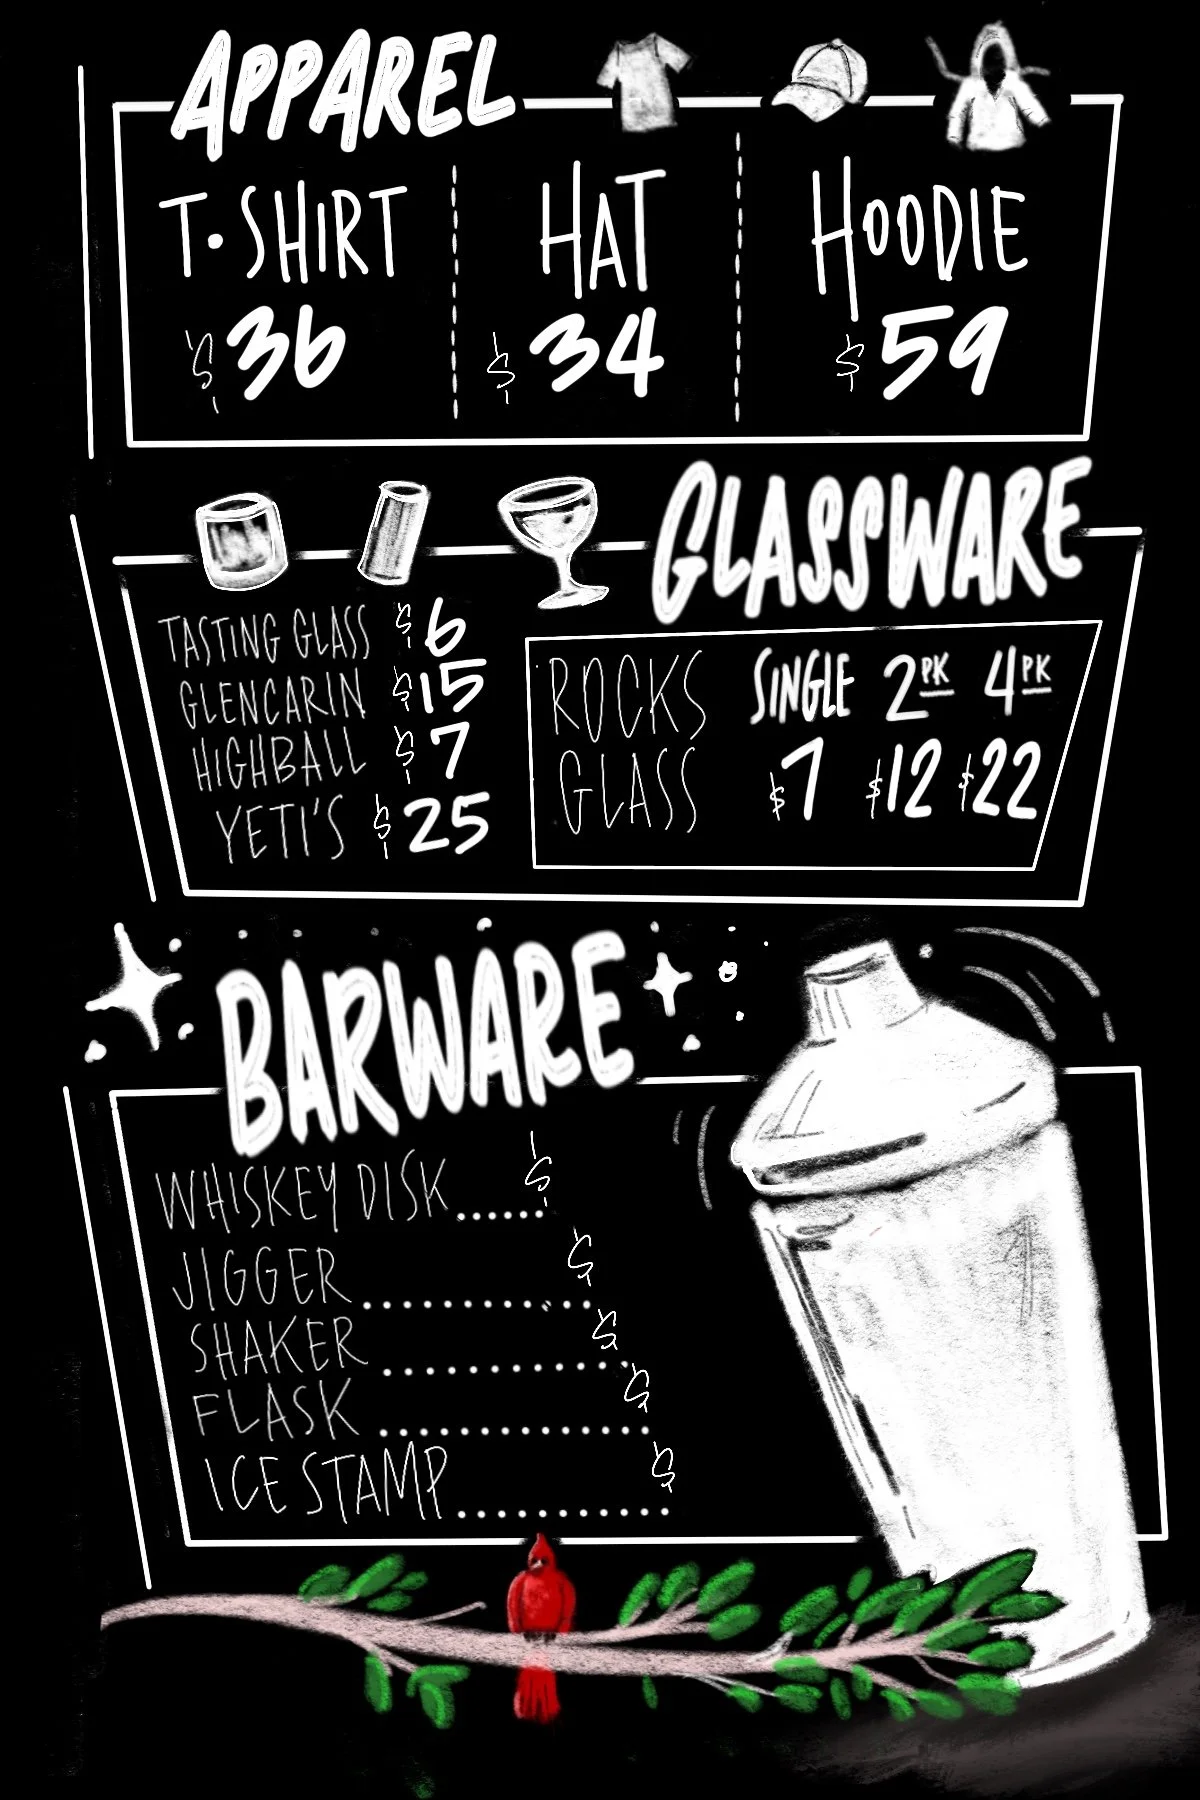 APPAREL
T•SHIRT
$36
HAT
$34
HOODIE
$59
GLASSWARE
TASTING GLASS $6
GLENCARIN $15
HIGHBALL $7
YETI'S $25
ROCKS GLASS
SINGLE 2PK 4PK
$7 $12 $22
BARWARE
WHISKEY DISK ...... $
JIGGER ............. $
SHAKER ............ $
FLASK ............. $
ICE STAMP .......... $